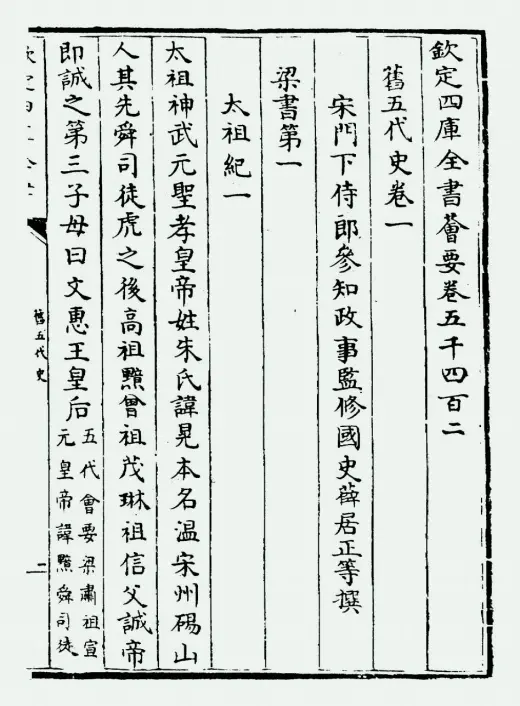 欽定四庫全書薈要卷五千四百二
舊五代史卷一
宋門下侍郎參知政事監修國史薛居正等撰
梁書第一
太祖紀一
太祖神武元聖孝皇帝姓朱氏諱晃本名温宋州碭山
人其先舜司徒虎之後高祖黯曾祖茂琳祖信父誠帝
即誠之第三子母曰文惠王皇后
五代會要梁肅祖宣
元皇帝諱黯舜司徒
舊五代史